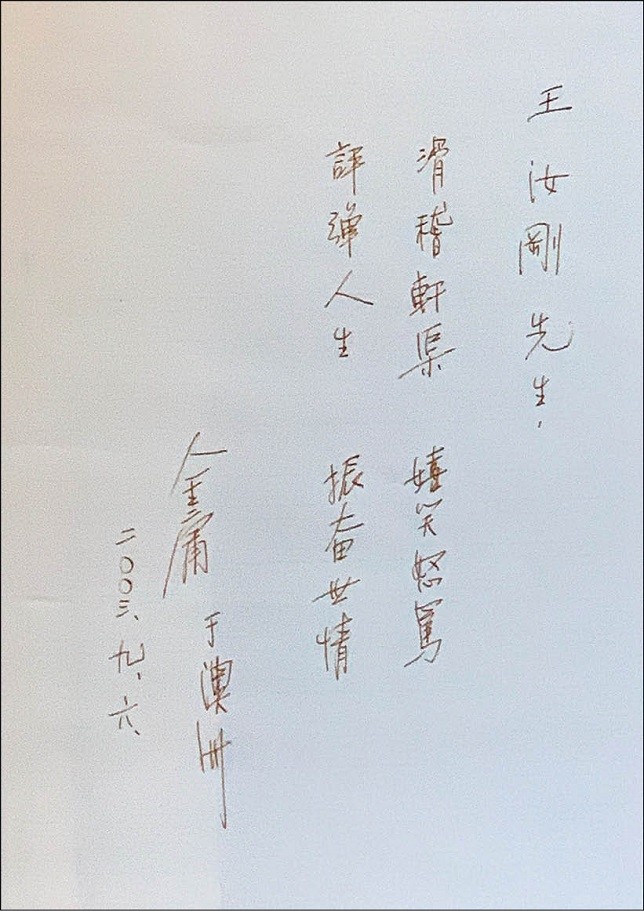 王汝剛先生，
滑稽軒渠 嬉笑怒罵
評彈人生 振奋世情
金庸 于澳洲
二〇〇三、九、六、